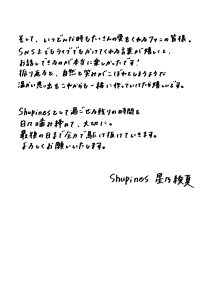 そして、いつどんな時もたくさんの愛をくれるファンの皆様。
SNS上でもライブでもかけてくれる言葉が嬉しくて、
お話しできるのが本当に楽しかったです！
振り返ると、自然と笑みがこぼれてしまうような
温かい思い出をこれからも一緒に作っていけたら嬉しいです。
Shupinesとして過ごせる残りの時間を
日々噛み締めて、大切に。
最後の日まで全力で駆け抜けていきます。
よろしくお願いいたします。
Shupines 星乃綾夏